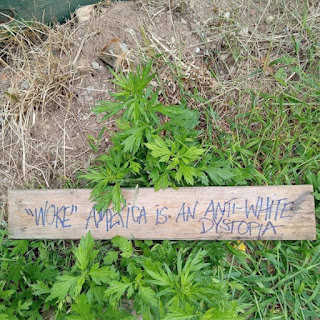 "WOKE" AMERICA IS AN ANTI-WHITE
DYSTOPIA.